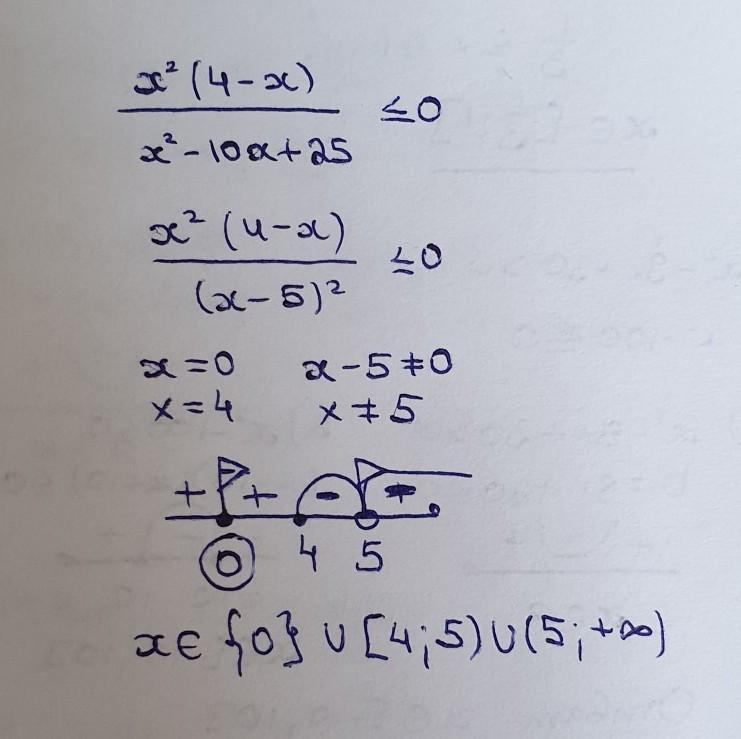 x² (4-x)
x²-10x+25
≤0
x² (4-x)
(x-5)²
≤0
x=0 x-5≠0
x=4 x≠5
+ + - -
0 4 5
x∈ {0} ∪ [4;5)∪(5;+∞)